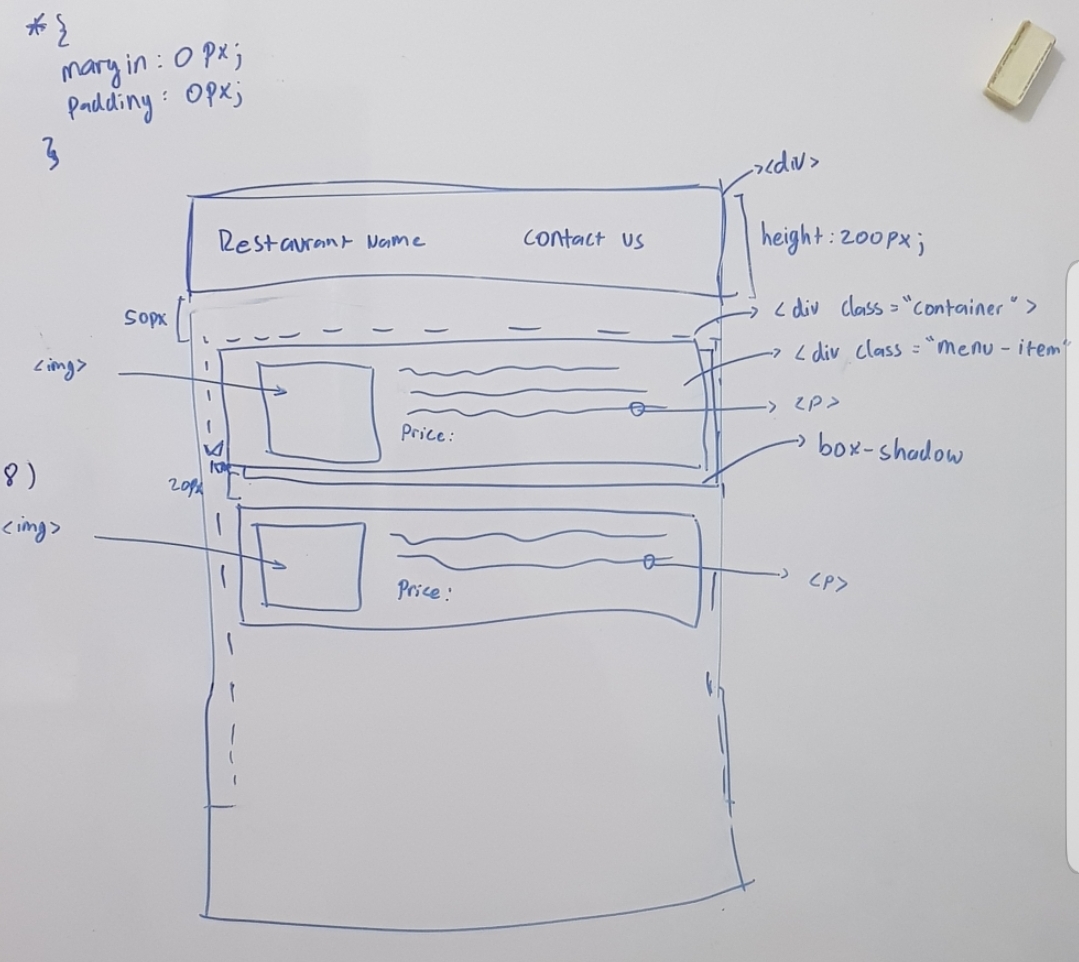 *{
margin: 0px;
padding: 0px;
}
<div>
Restaurant Name
Contact us
height: 200px;
50px
<div class="container">
<div class="menu-item"
<img>
<p>
Price:
box-shadow
8)
20px
<img>
Price:
<p>